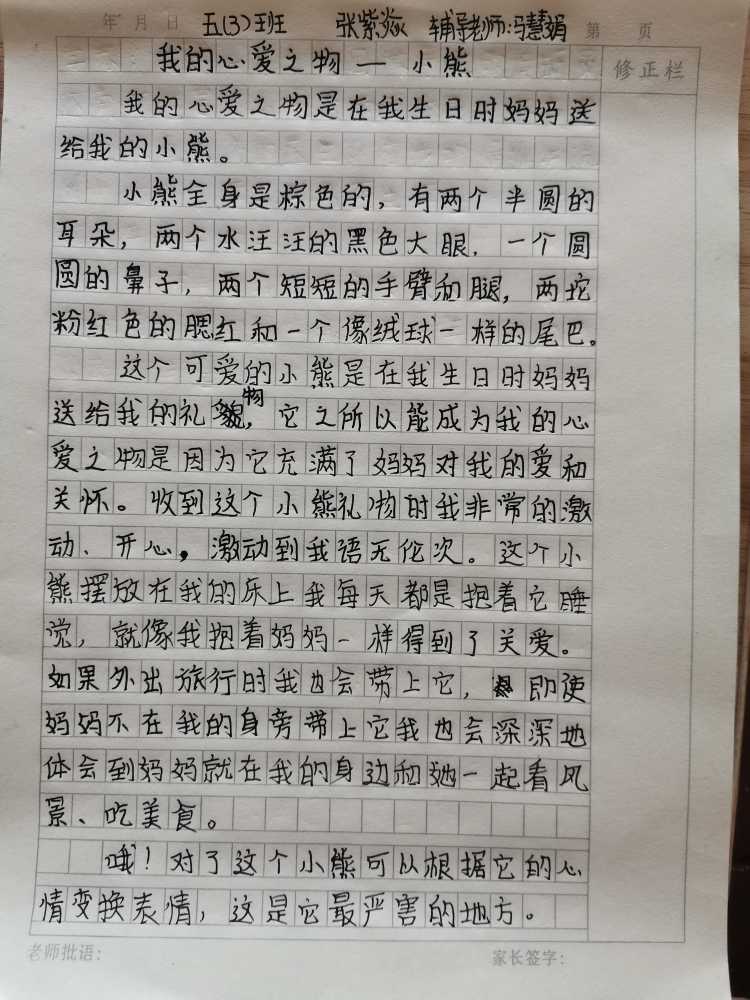 年 月 日 五(3)班 张紫焱 辅导老师:马慧娟 第 页
我的心爱之物一小熊 修正栏
我的心爱之物是在我生日时妈妈送
给我的小熊。
小熊全身是棕色的,有两个半圆的
耳朵,两个水汪汪的黑色大眼.一个圆
圆的鼻子,两个短短的手臂和腿,两坨
粉红色的腮红和一个像绒球一样的尾巴。
这个可爱的小熊是在我生日时妈妈
送给我的礼物,它之所以能成为我的心
爱之物是因为它充满了妈妈对我的爱和
关怀。收到这个小熊礼物时我非常的激
动、开心,激动到我语无伦次。这个小
熊摆放在我的床上我每天都是抱着它睡
觉,就像我抱着妈妈一样得到了关爱。
如果外出旅行时我也会带上它,即使
妈妈不在我的身旁带上它我也会深深地
体会到妈妈就在我的身边和她一起看风
景、吃美食。
哦!对了这个小熊可以根据它的心
情变换表情,这是它最严害的地方。
老师批语: 家长签字: